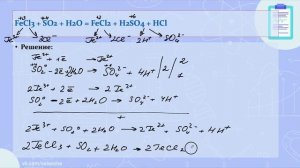 +3 +4 +2 +6
FeCl3 + SO2 + H2O = FeCl2 + H2SO4 + HCl
Fe³⁺ 3Cl⁻ Fe²⁺ 2Cl⁻ 2H⁺ SO4²⁻
• Решение:
Fe³⁺ + 1ē → Fe²⁺ | 2
SO2⁰ − 2ē + 2H2O → SO4²⁻ + 4H⁺ | 2 | 1
2Fe³⁺ + 2ē → 2Fe²⁺
SO2⁰ − 2ē + 2H2O → SO4²⁻ + 4H⁺
2Fe³⁺ + SO2⁰ + 2H2O → 2Fe²⁺ + SO4²⁻ + 4H⁺
2FeCl3 + SO2 + 2H2O → 2FeCl2